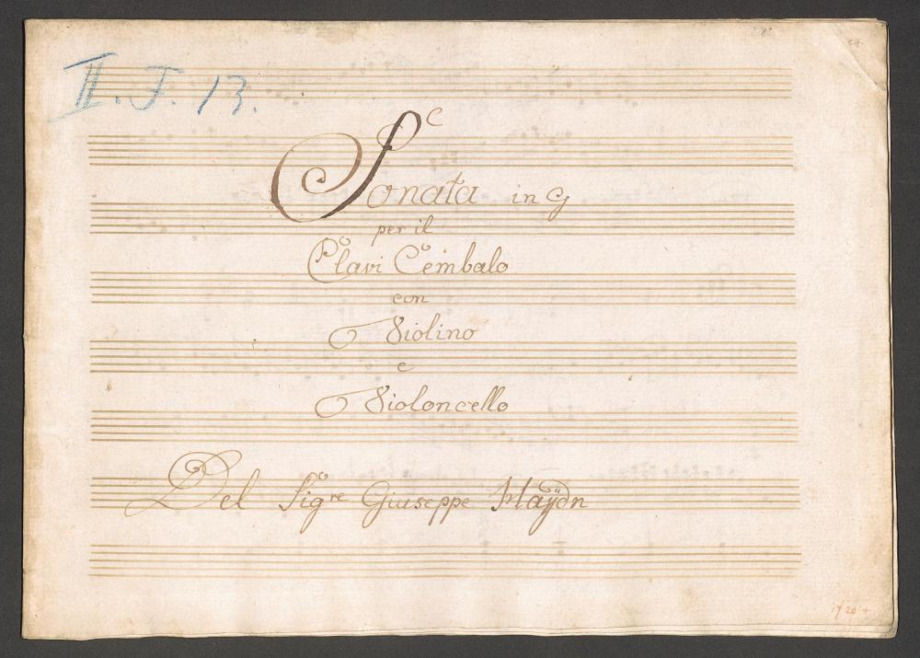 II. F. 13.
Sonata in G
per il
Clavi Cembalo
con
Violino
e
Violoncello
Del Sig.re Giuseppe Haÿdn